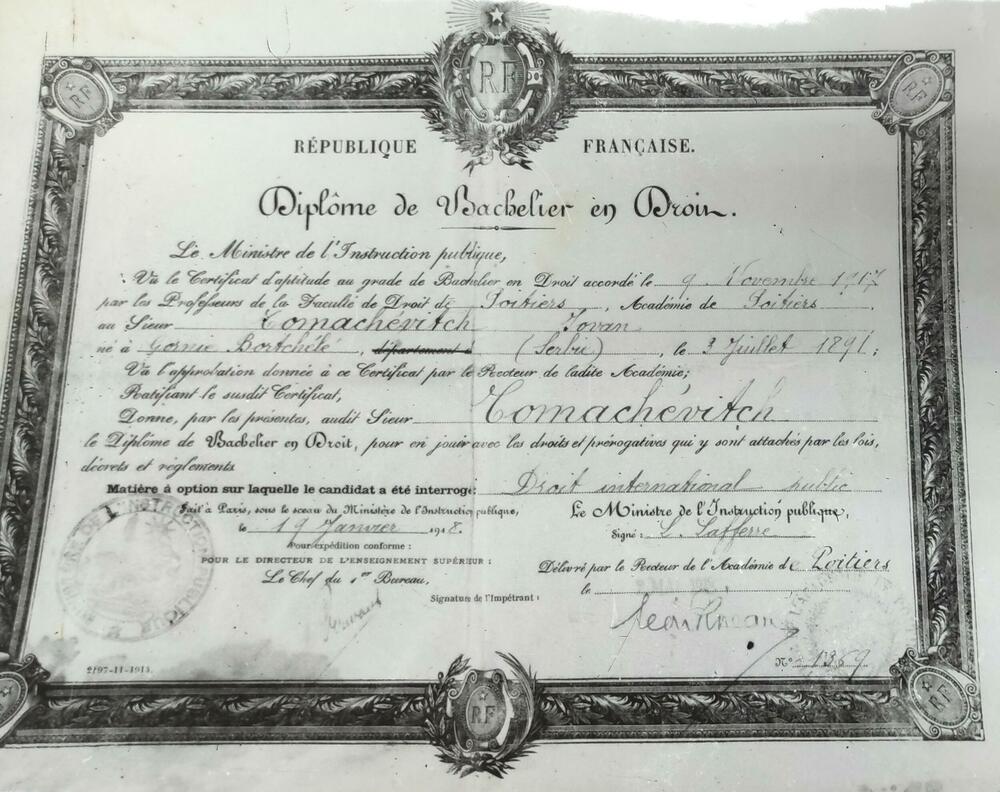 RF
RF
RF
RÉPUBLIQUE FRANÇAISE.
Diplôme de Bachelier en Droit.
Le Ministre de l'Instruction publique,
Vu le Certificat d'aptitude au grade de Bachelier en Droit accordé le 9 Novembre 1917
par les Professeurs de la Faculté de Droit de Poitiers, Académie de Poitiers
au Sieur Tomachévitch Jovan
né à Gornie Bortchélé, département d (Serbie), le 3 Juillet 1891;
Vu l'approbation donnée à ce Certificat par le Recteur de ladite Académie;
Ratifiant le susdit Certificat,
Donne, par les présentes, audit Sieur Tomachévitch
le Diplôme de Bachelier en Droit, pour en jouir avec les droits et prérogatives qui y sont attachés par les lois,
décrets et règlements
Matière à option sur laquelle le candidat a été interrogé: Droit international public
Fait à Paris, sous le sceau du Ministère de l'Instruction publique,
le 19 Janvier 1918.
Le Ministre de l'Instruction publique,
Signé: L. Lafferre
Pour expédition conforme:
POUR LE DIRECTEUR DE L'ENSEIGNEMENT SUPÉRIEUR:
Le Chef du 1er Bureau,
Délivré par le Recteur de l'Académie de Poitiers
le
Signature de l'Impétrant:
N° 1369
2197-11-1913.
RF
RF